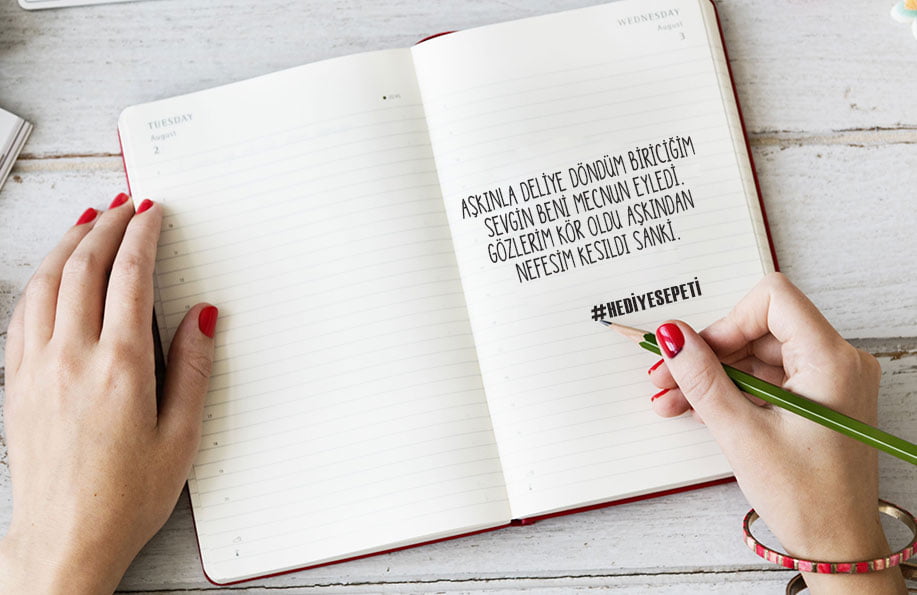 TUESDAY
August
2
WEDNESDAY
August
3
AŞKINLA DELİYE DÖNDÜM BİRİCİĞİM
SEVGİN BENİ MECNUN EYLEDİ.
GÖZLERİM KÖR OLDU AŞKINDAN
NEFESİM KESİLDİ SANKİ.
#HEDİYESEPETİ